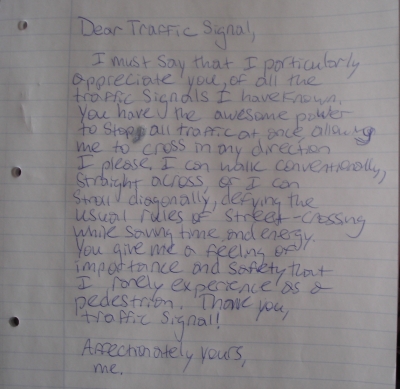 Dear Traffic Signal,
I must say that I particularly
appreciate you, of all the
traffic signals I have known.
You have the awesome power
to stop all traffic at once allowing
me to cross in any direction
I please. I can walk conventionally,
straight across, or I can
stroll diagonally, defying the
usual rules of street-crossing
while saving time and energy.
You give me a feeling of
importance and safety that
I rarely experience as a
pedestrian. Thank you,
traffic signal!
Affectionately yours,
me.